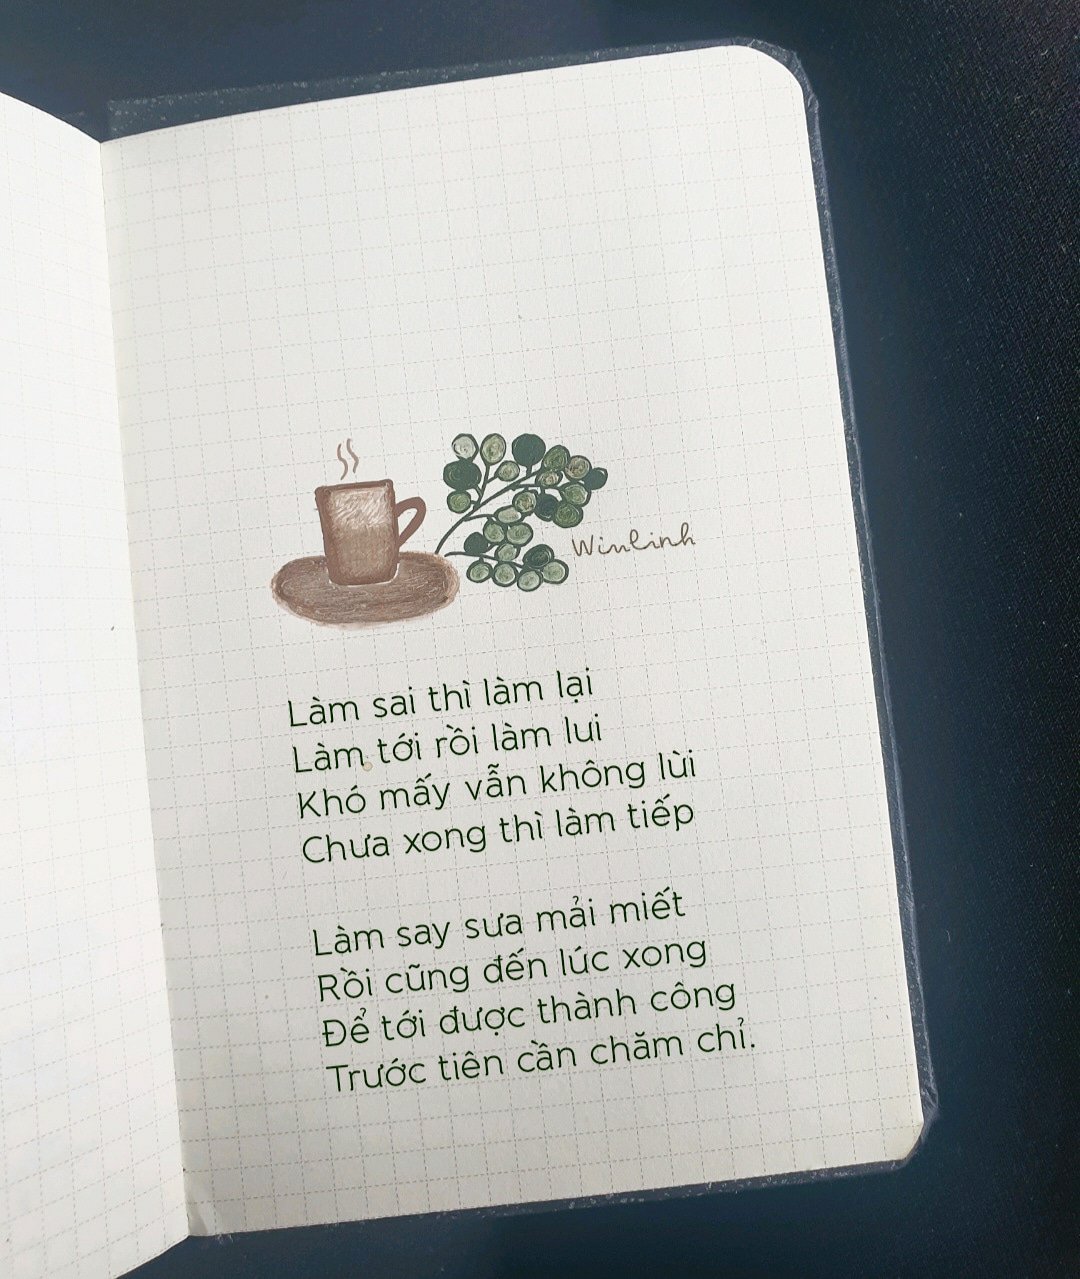 Winlinh
Làm sai thì làm lại
Làm tới rồi làm lui
Khó mấy vẫn không lùi
Chưa xong thì làm tiếp
Làm say sưa mải miết
Rồi cũng đến lúc xong
Để tới được thành công
Trước tiên cần chăm chỉ.